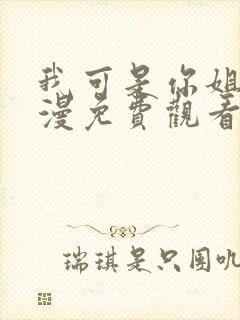 我可是你姐
漫免費觀看
瑞琪是只圈叽